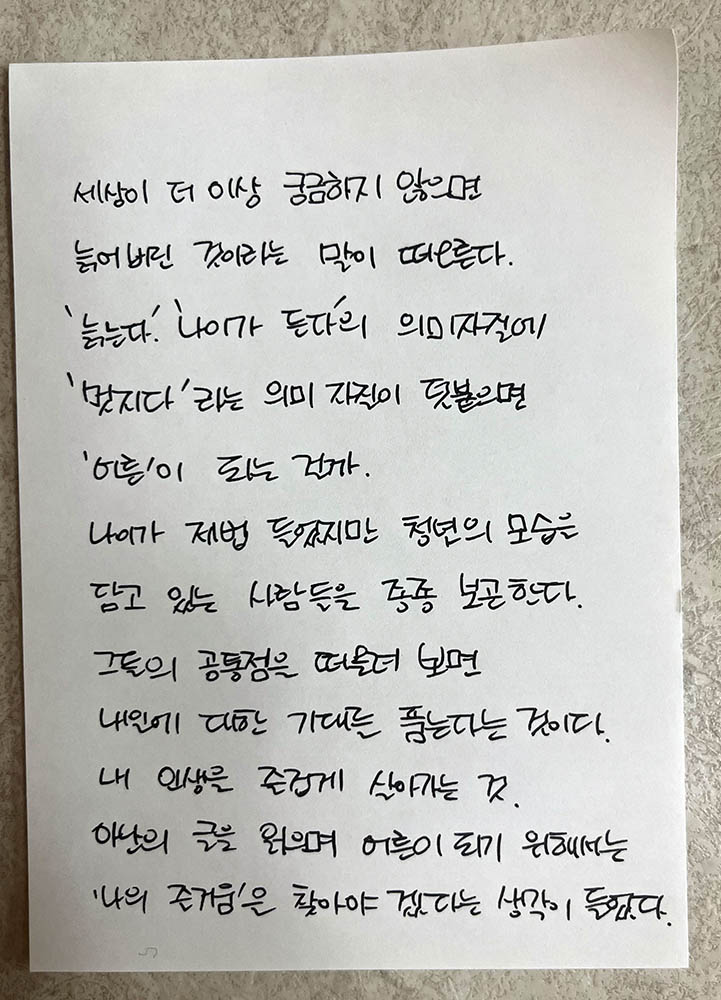 세상이 더 이상 궁금하지 않으면
늙어버린 것이라는 말이 떠오른다.
'늙는다.' '나이가 든다'의 의미자질에
'멋지다'라는 의미 자질이 덧붙으면
'어른'이 되는 걸까.
나이가 제법 들었지만 청년의 모습을
담고 있는 사람들을 종종 보곤한다.
그들의 공통점을 떠올려 보면
내일에 대한 기대를 품는다는 것이다.
내 인생을 즐겁게 살아가는 것.
아난의 글을 읽으며 어른이 되기 위해서는
'나의 즐거움'은 찾아야 겠다는 생각이 들었다.